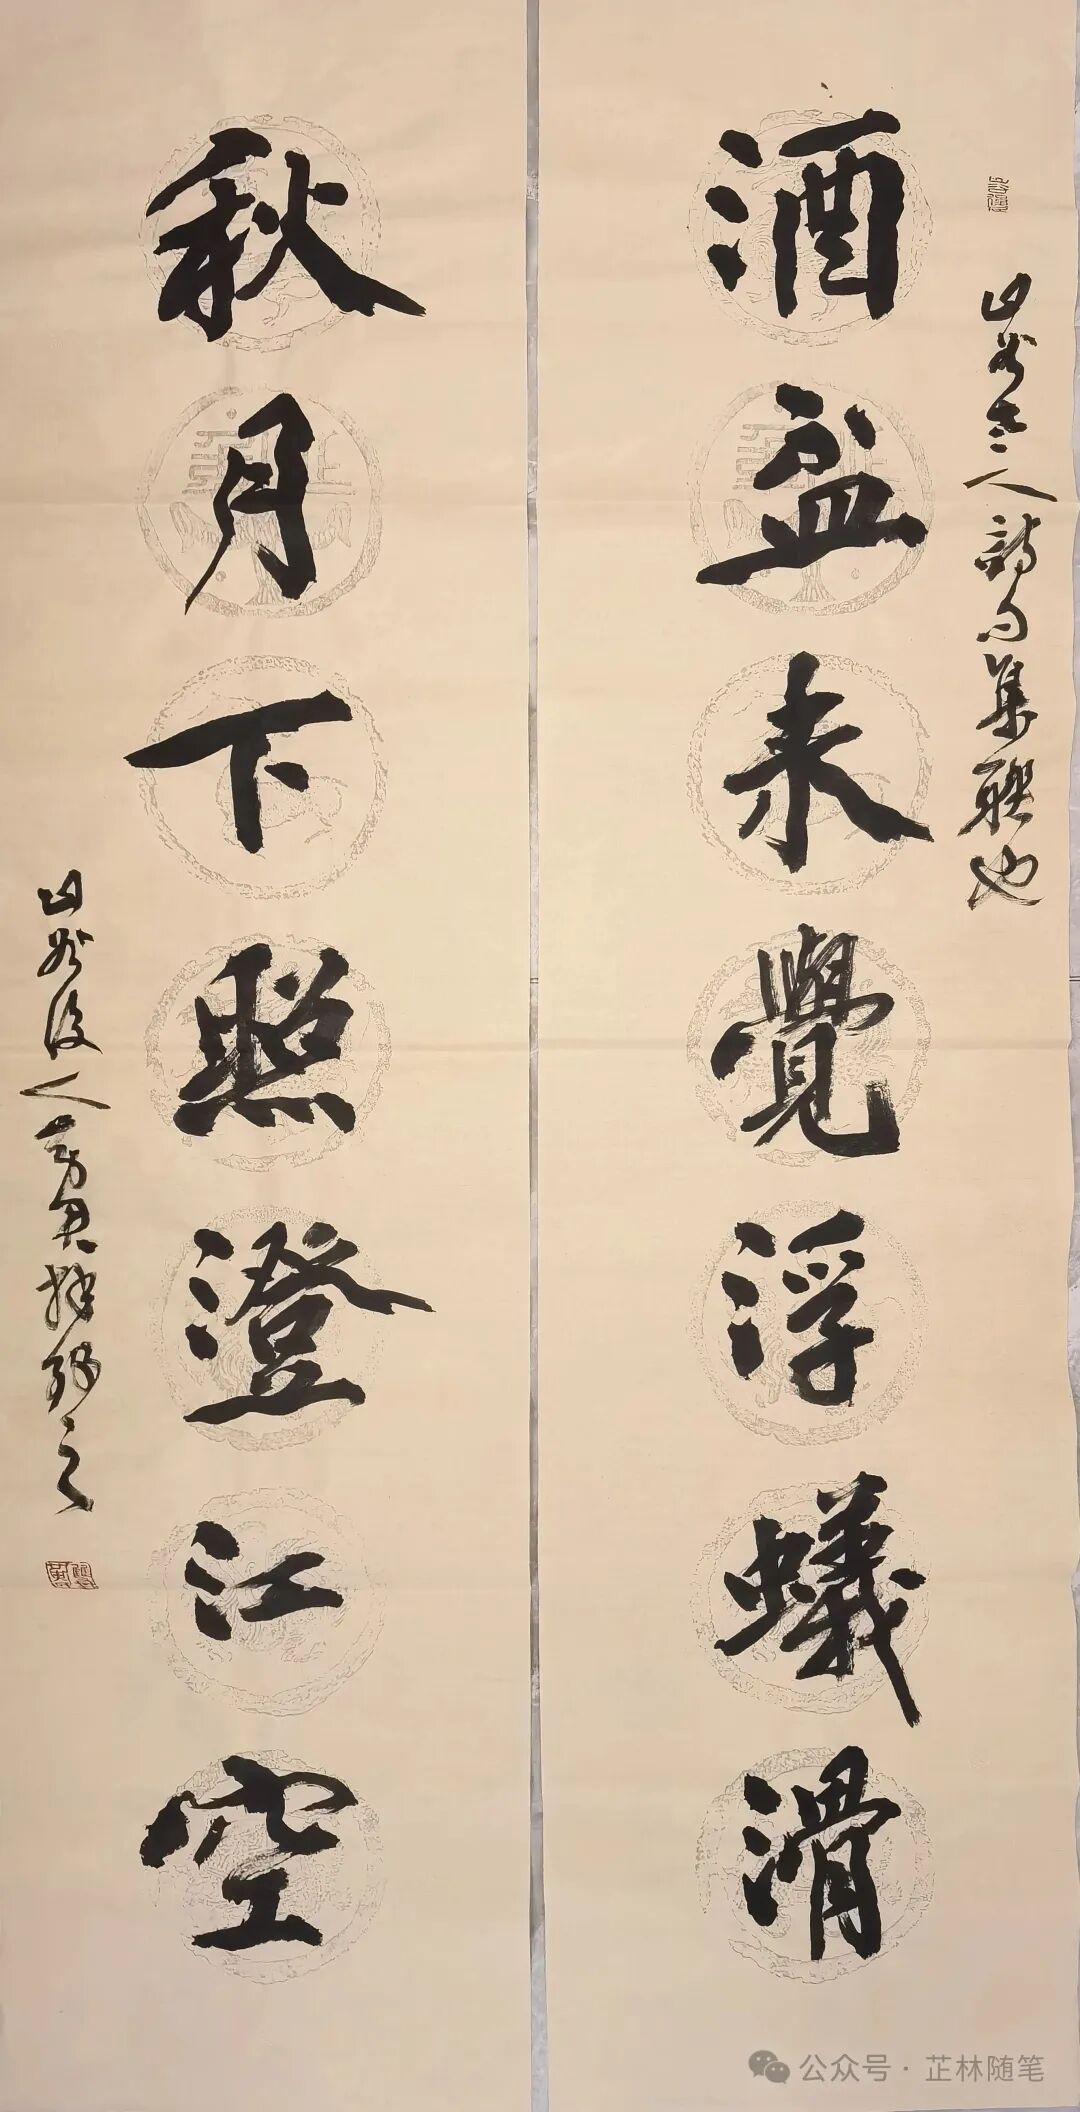 酒盈来覺浮蟻滑
山谷老人詩句集聯也
秋月下照澄江空
山谷後人黄
公众号·芷林随笔